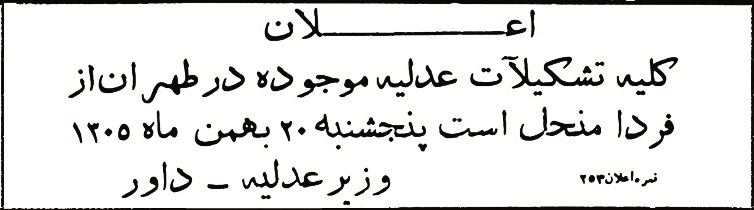 اعـــــلان
کلیه تشکیلآت عدلیه موجوده در طهران از
فردا منحل است پنجشنبه ۲۰ بهمن ماه ۱۳۰۵
نمره اعلان ۲۵۳ وزیر عدلیه ـ داور